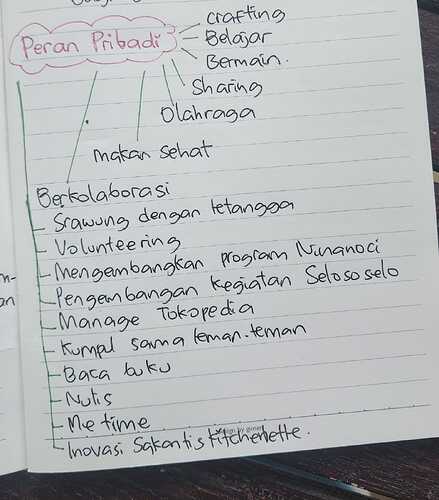 Peran Pribadi
crafting
Belajar
Bermain.
Sharing
Olahraga
makan sehat
Berkolaborasi
Srawung dengan tetangga
Volunteering
Mengembangkan program Nunanoci
Pengembangan kegiatan Selososelo
Manage Tokopedia
Kumpul sama teman-teman
Baca buku
Nulis
Me time
Inovasi Sakantis Kitchenette.